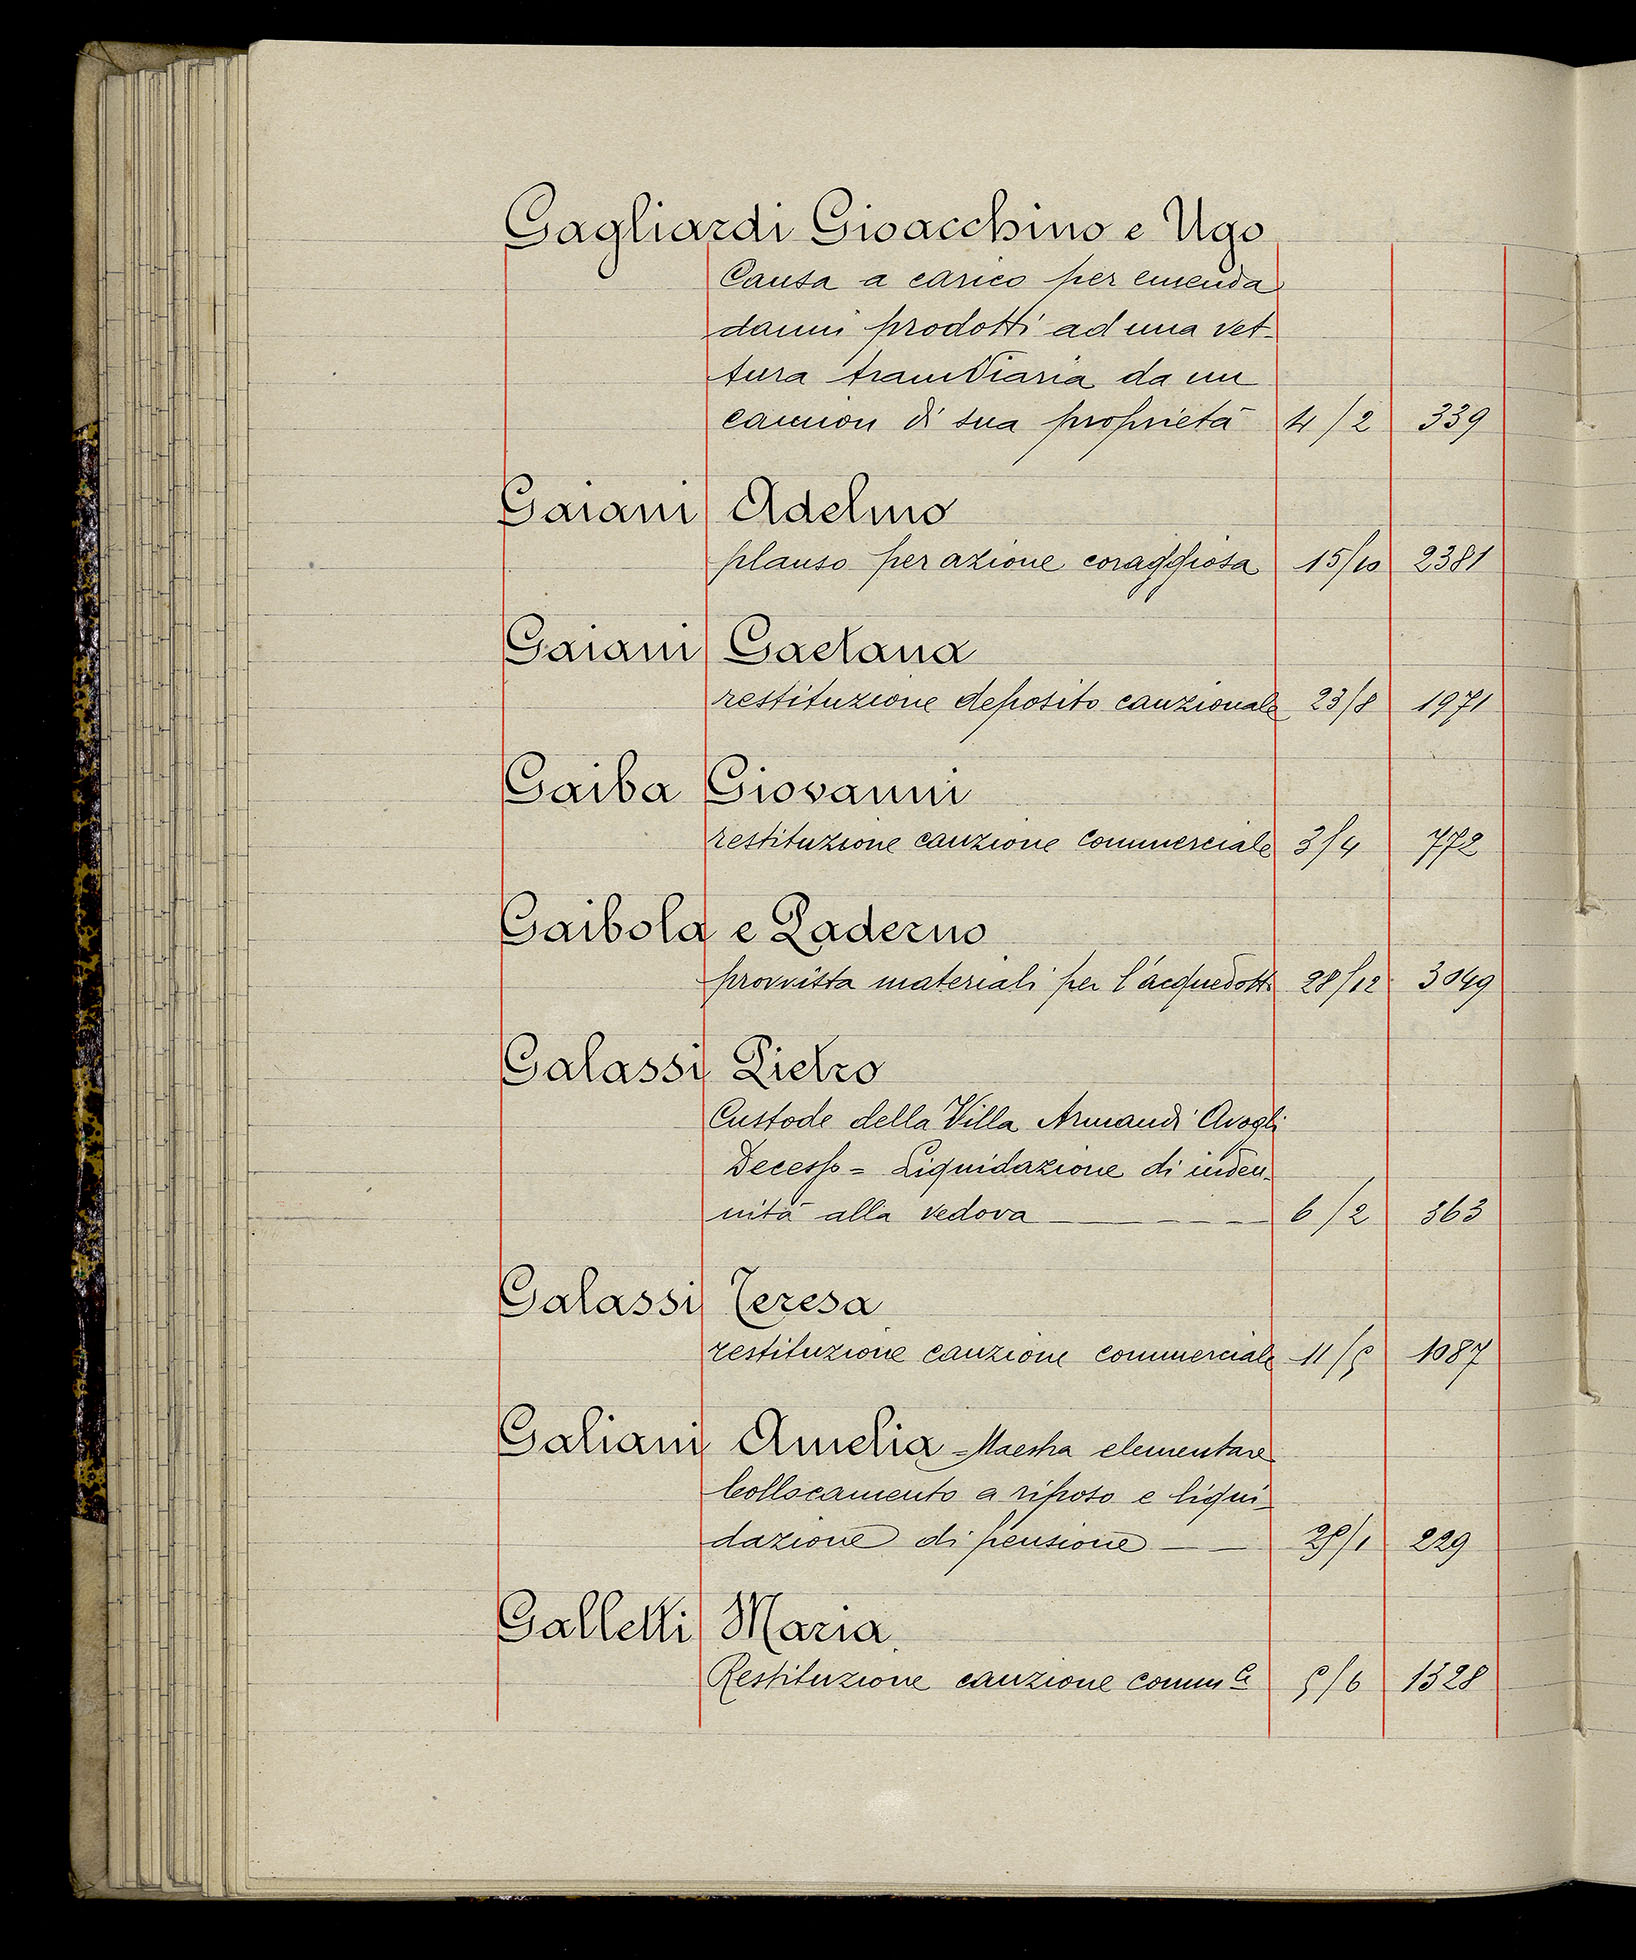 Gagliardi Gioacchino e Ugo
Causa a carico per emenda
danni prodotti ad una vet-
tura tramviaria da un
camion di sua proprietà 4/2 339
Gaiani Adelmo
plauso per azione coraggiosa 15/10 2381
Gaiani Gaetana
restituzione deposito cauzionale 23/8 1971
Gaiba Giovanni
restituzione cauzione commerciale 3/4 772
Gaibola e Paderno
provvista materiali per l'acquedotto 28/12 3049
Galassi Pietro
Custode della Villa Armandi Avogli
Decesso = Liquidazione di inden-
nità alla vedova 6/2 363
Galassi Teresa
restituzione cauzione commerciale 11/5 1087
Galiani Amelia = Maestra elementare
Collocamento a riposo e liqui-
dazione di pensione 229
Galletti Maria
Restituzione cauzione comm.le 5/6 1328